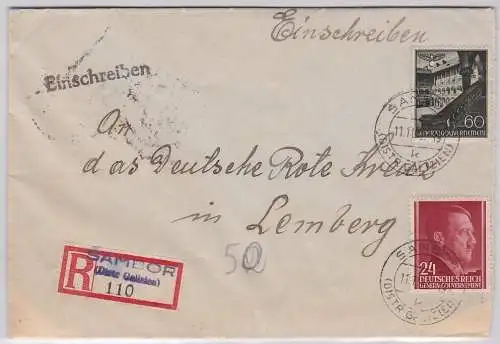 Einschreiben
Einschreiben
60
GENERALGOUVERNEMENT
SAMBOR
11.
(DISTR. GALIZIEN)
k
An
das Deutsche Rote Kreuz
in Lemberg
24
DEUTSCHES REICH
GENERALGOUVERNEMENT
11.
(DISTR. GALIZIEN)
k
R
SAMBOR
(Distr. Galizien)
110
50